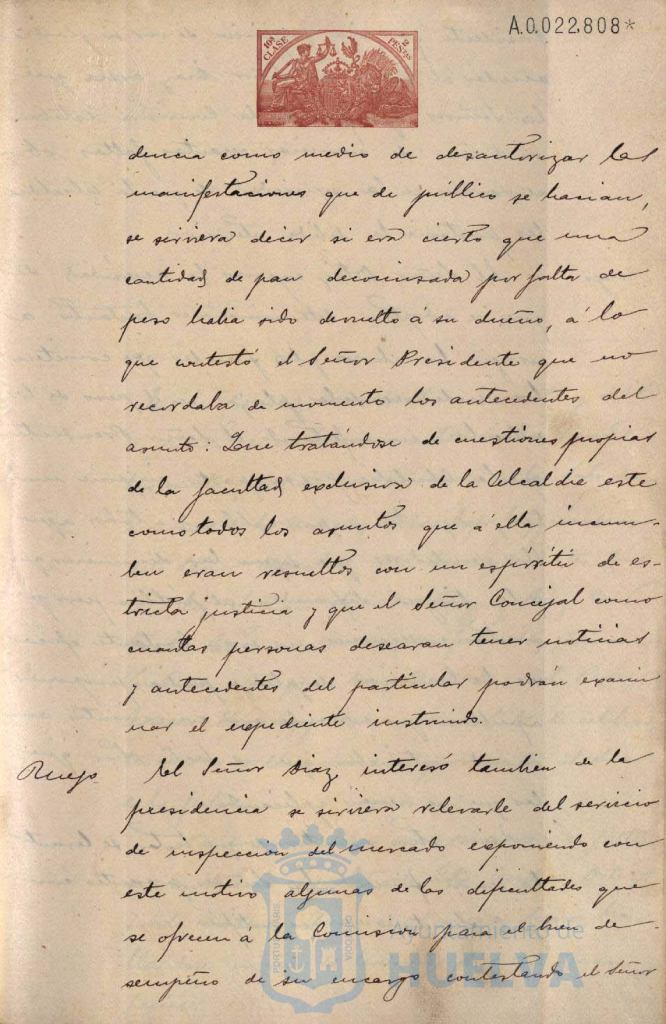 A.0.022.808*
10ª CLASE
2 PESETAS
dencia como medio de desautorizar las
manifestaciones que de público se hacian,
se sirviera decir si era cierto que una
cantidad de pan decomisada por falta de
peso habia sido devuelto á su dueño, á lo
que contestó el Señor Presidente que no
recordaba de momento los antecedentes del
asunto: Que tratándose de cuestiones propias
de la facultad exclusiva de la Alcaldia este
como todos los asuntos que á ella incum-
ben eran resueltos con un espíritu de es-
tricta justicia y que el Señor Concejal como
cuantas personas desearan tener noticias
y antecedentes del particular podrán exami
nar el expediente instruido.
Ruego El Señor Diaz interesó tambien de la
presidencia se sirviera relevarle del servicio
de inspeccion del mercado exponiendo con
este motivo algunas de las dificultades que
se ofrecen á la Comision para el buen de-
sempeño de su encargo contestando el Señor
Ayuntamiento de
HUELVA